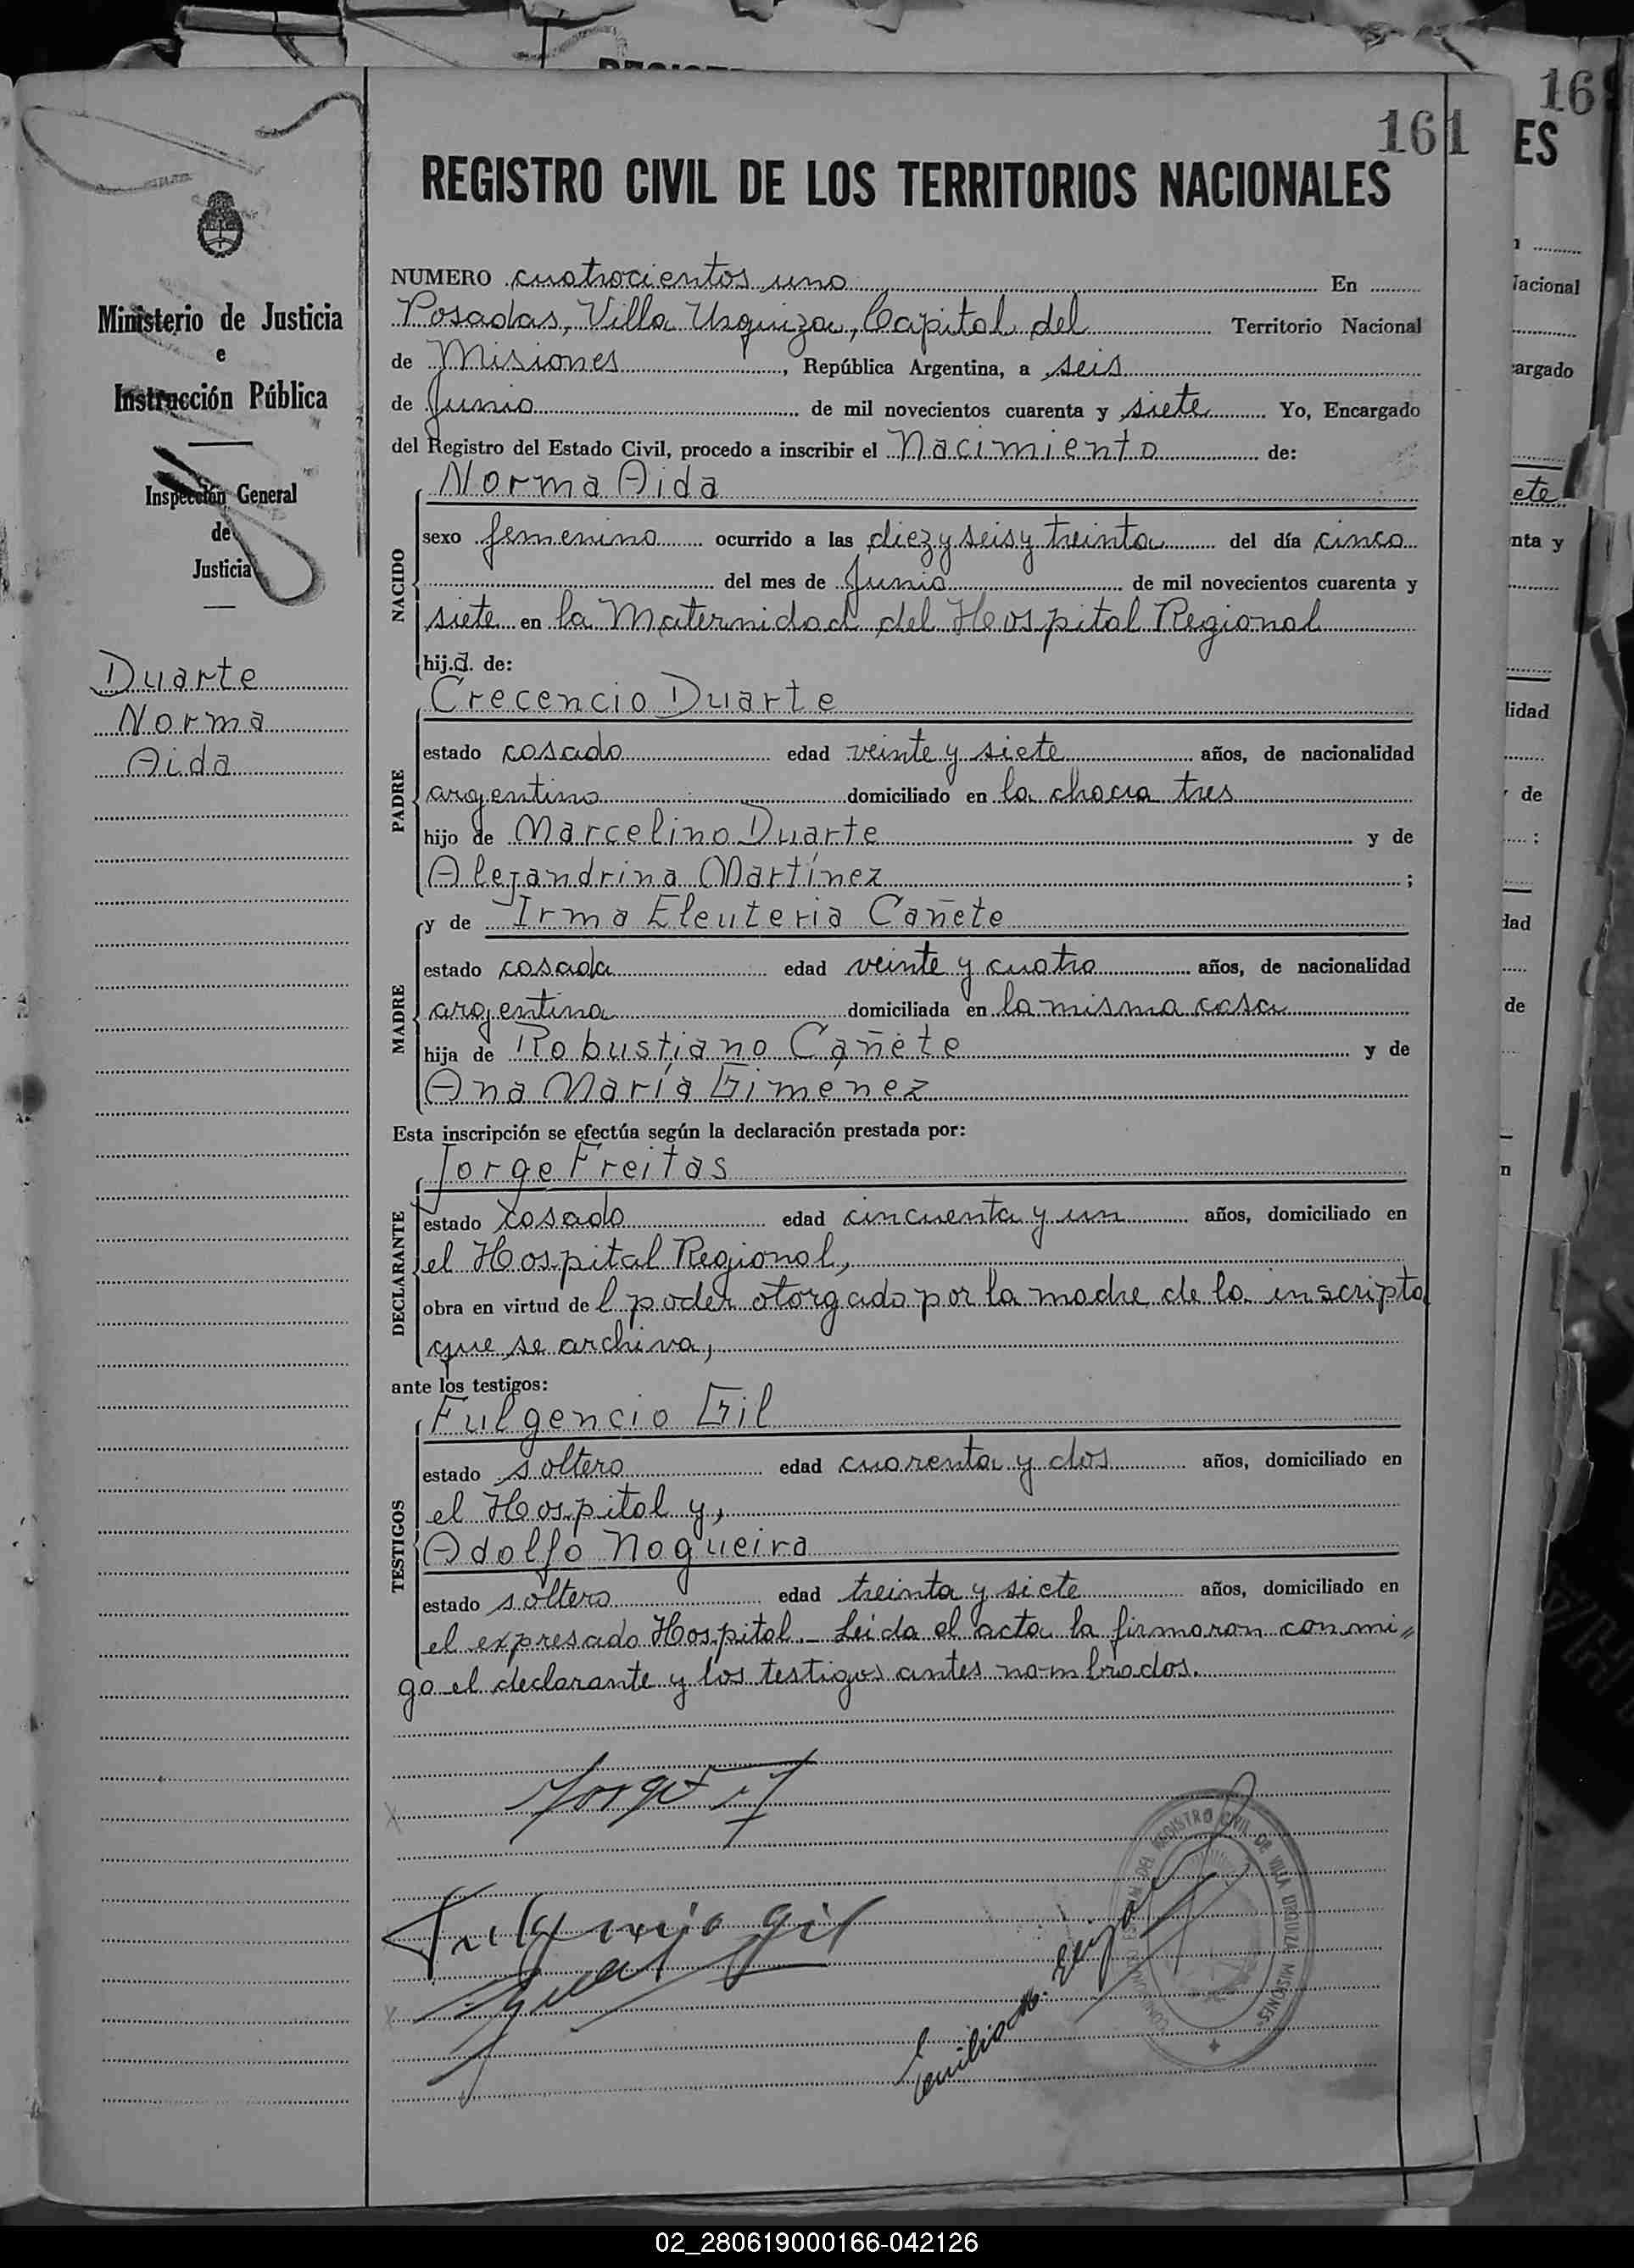 161
REGISTRO CIVIL DE LOS TERRITORIOS NACIONALES
Ministerio de Justicia
e
Instrucción Pública
Inspección General
de
Justicia
Duarte
Norma
Aida
NUMERO cuatrocientos uno En
Posadas, Villa Urquiza, Capital del Territorio Nacional
de Misiones, República Argentina, a seis
de Junio de mil novecientos cuarenta y siete Yo, Encargado
del Registro del Estado Civil, procedo a inscribir el Nacimiento de:
Norma Aida
NACIDO
sexo femenino ocurrido a las diez y seis y treinta del día cinco
del mes de Junio de mil novecientos cuarenta y
siete en la Maternidad del Hospital Regional
hija de:
Crecencio Duarte
PADRE
estado casado edad veinte y siete años, de nacionalidad
argentino domiciliado en la chacra tres
hijo de Marcelino Duarte y de
Alejandrina Martínez ;
y de Irma Eleuteria Cañete
MADRE
estado casada edad veinte y cuatro años, de nacionalidad
argentina domiciliada en la misma casa
hija de Robustiano Cañete y de
Ana María Gimenez
Esta inscripción se efectúa según la declaración prestada por:
Jorge Freitas
DECLARANTE
estado casado edad cincuenta y un años, domiciliado en
el Hospital Regional,
obra en virtud del poder otorgado por la madre de la inscripta
que se archiva,
ante los testigos:
Fulgencio Gil
TESTIGOS
estado soltero edad cuarenta y dos años, domiciliado en
el Hospital y,
Adolfo Nogueira
estado soltero edad treinta y siete años, domiciliado en
el expresado Hospital.- Leída el acta la firmaron conmi=
go el declarante y los testigos antes nombrados.
Jorge F
Fulgencio Gil
Emilio
REGISTRO CIVIL DE VILLA URQUIZA MISIONES
16
ES
Nacional
argado
ete
nta y
lidad
de
;
dad
de
n
02_280619000166-042126